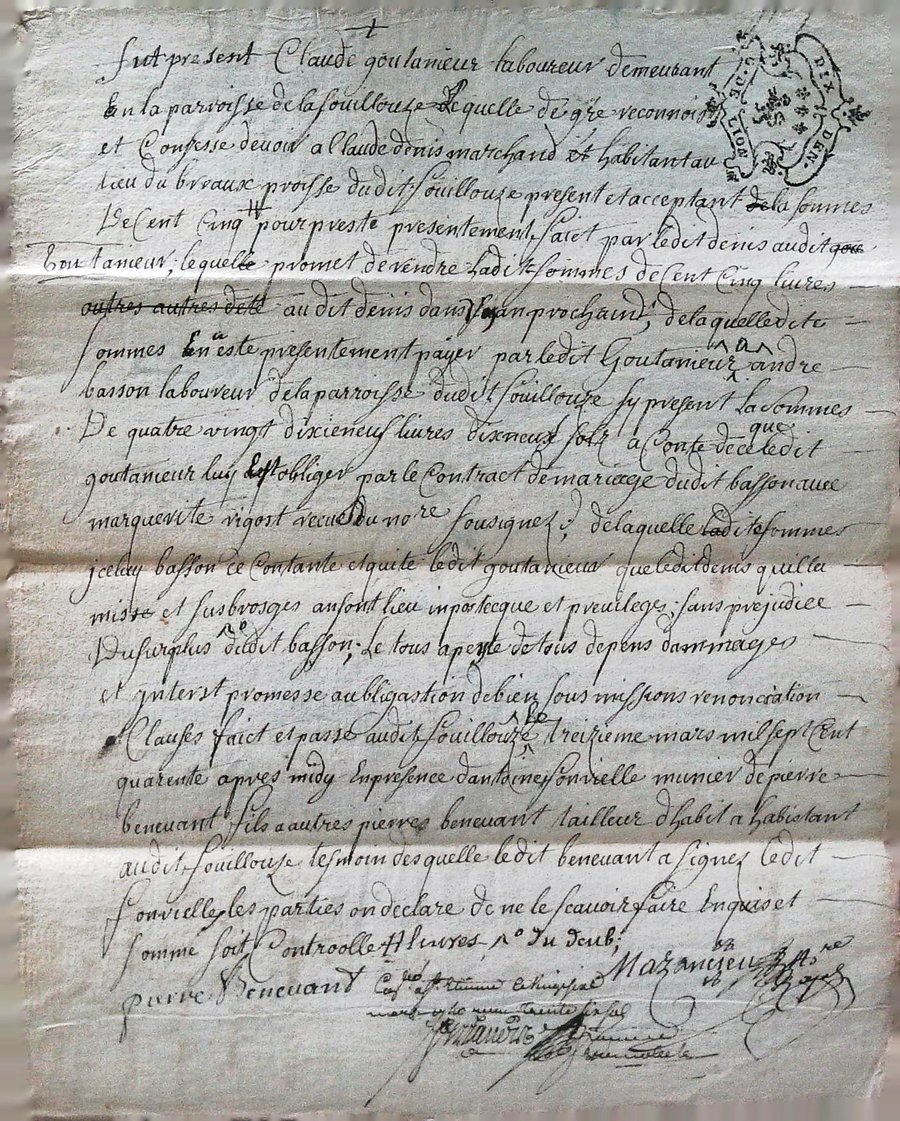 fut present Claude goutanieur laboureur demeurant
En la parroisse de la fouillouze Lequelle de gre reconnois
et Confesse devoir a Claude denis marchand et habitant au
lieu du breaux proisse dudit fouillouze present et acceptant de la sommes
De Cent Cinq ₶ pour preste presentement faict par ledit denis audit gou
Goutanieur, lequelle promet de rendre ladit sommes de Cent Cinq livres
outres autres dele audit denis dans un an prochain, de laquelledite
sommes En a este presentement payer par ledit Goutanieur a andre
basson laboureur de la parroisse dudit fouillouze sy present La sommes
De quatre vingt dixieneuf livres dixneuf solz a Conte de ce que ledit
goutanieur luy Est obliger par le Contract de mariage dudit basson avec
marguerite rigost receu du nore sousignez, de laquelle ladite sommes
jceluy basson ce Contante et quite ledit goutanieur que ledit denis qui lla
misse et susbroges an sont lieu inpotecque et previleges; sans prejudice
Du surplus dudit basson; Le tous a pene de tous depens dammages
et interest promesse aubligastion de bien sousmissions renonciation
Clauses faict et passé audit fouillouze le treizieme mars mil sept Cent
quarente apres midy En presence dantoine fonvielle munier de pierre
benevant fils a autres pierres benevant tailleur dhabit a habistant
audit fouillouze tesmoin desquelle ledit benevant a signez ledit
fonvielle les parties on declare de ne le scavoir faire Enquis et
sommé soit Controolle # livres du deub;
pierre Benevant
Mazancieu
Nre Royal